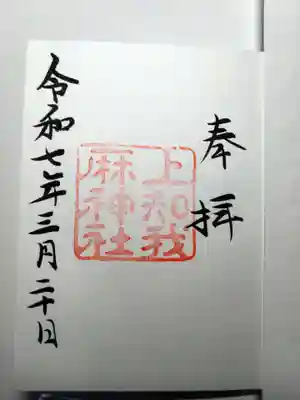 奉拝
上知我
麻神社
令和七年三月二十日